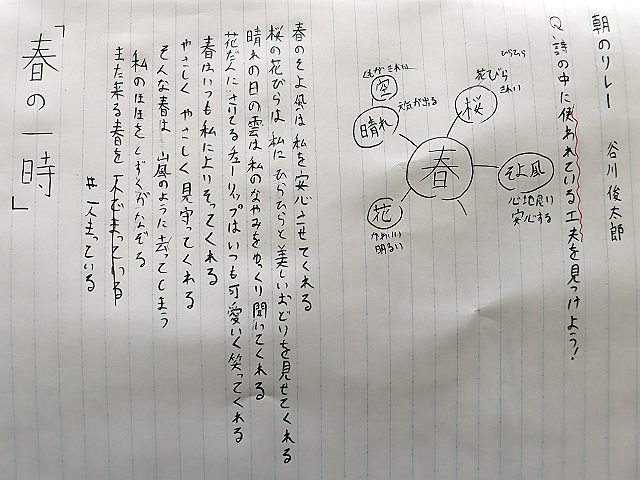 朝のリレー 谷川俊太郎
Q、詩の中に使われている工夫を見つけよう!
春
桜
花びら
ひらひら
きれい
そよ風
心地よい
安心する
晴れ
元気が出る
空
くもがきれい
花
かわいい
明るい
春のそよ風は私を安心させてくれる
桜の花びらは私にひらひらと美しいおどりを見せてくれる
晴れの日の雲は私のなやみをゆっくり聞いてくれる
花だんにさいてるチューリップはいつも可愛いく笑ってくれる
春はいつも私によりそってくれる
やさしくやさしく見守ってくれる
そんな春は山風のように去ってしまう
私のほほをしずくがなぞる
また来る春を
#人まっている
「春の一時」